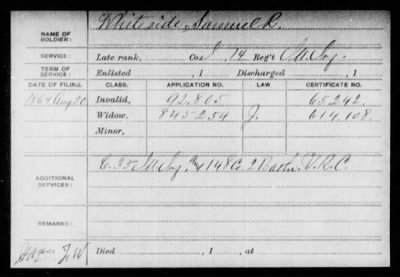 NAME OF SOLDIER: Whiteside, Samuel R.
SERVICE: Late rank, Co. I, 14 Reg't
TERM OF SERVICE: Enlisted , 1 Discharged , 1
DATE OF FILING. CLASS. APPLICATION NO. LAW. CERTIFICATE NO.
1864 Aug 20 Invalid, 92.805 65.242.
Widow, 845.254 J. 614.108.
Minor,
ADDITIONAL SERVICES: C. 35 & 148 Co. 2 V.R.C.
REMARKS:
Died , 1 , at